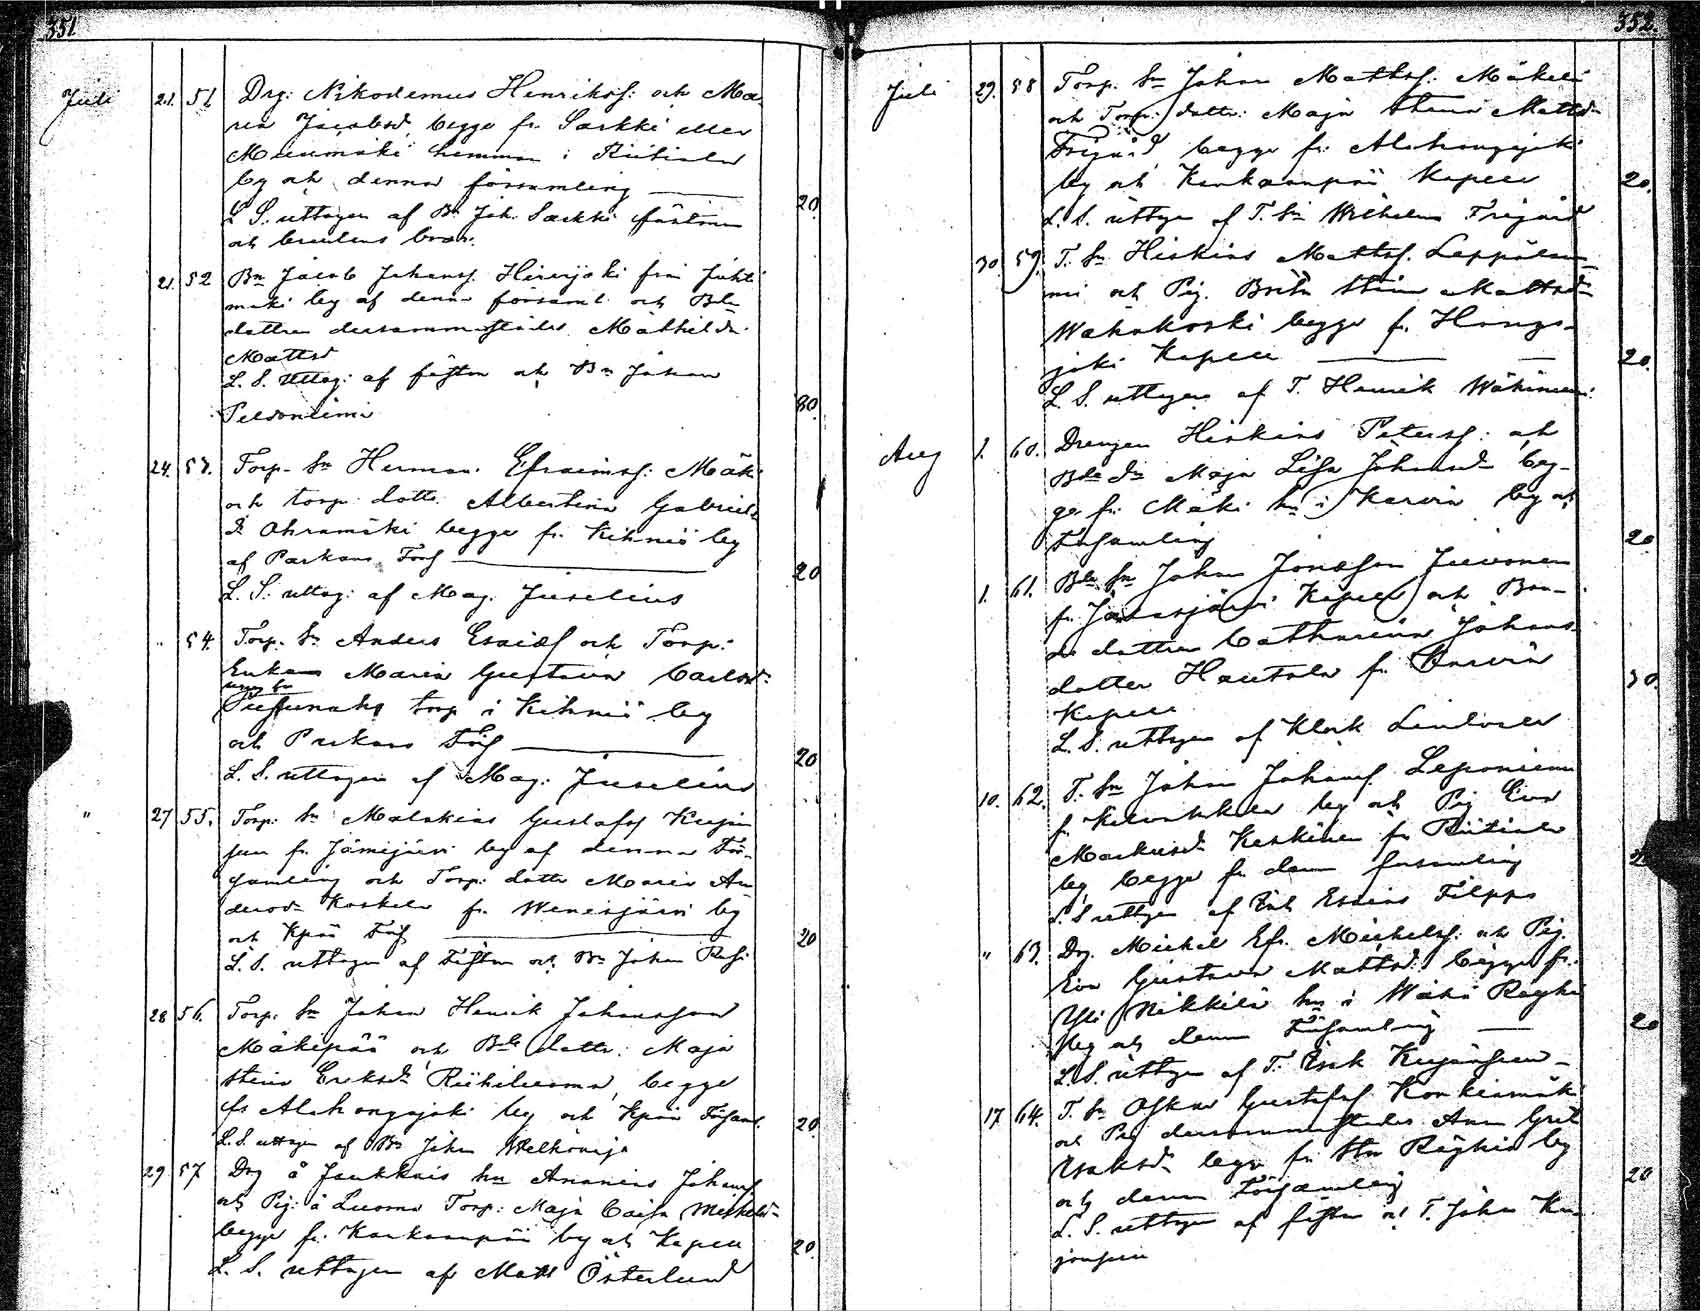 351
Juli 21. 51. Drg: Nikodemus Henrikss: och Ma-
ria Jacobsd. begge fr. Sarkki eller
Muumäki hemman i Riitiala
by och denna församling
20
L. S. uttagen af Bn Joh. Sarkki fästmn
och brudens bror.
21. 52 Bn Jacob Johanss. Hirvijoki från Juhti
mäki by af denna församl. och Bde
dottren dersammastädes Mathilda
Mattsd
L. S. uttag: af fästm och Bn Johan
80
Peldoniemi
24. 53. Torp. Sn Herman Efraimss: Mäki
och torp. dottr. Albertina Gabriels
Dr Ohramäki begge fr. Kihniö by
af Parkano Förs
20
L. S. uttag: af Mag. Juselius
" 54. Torp. Sn Anders Esaiss och Torp:
Enkan Maria Gustava Carlsd:
torp i Kihniö by
och Parkano Förs
20
L. S. uttagen af Mag: Juselius
" 27 55. Torp: Sn Malakias Gustafss Kujan
pää fr. Jämijärvi by af denna För-
samling och Torp: dottr Maria An
dersd. Koskela fr. Wenesjärvi by
och Kpää Förs
20
L. S. uttagen af Fästm och Bn Johan
28 56. Torp: Sn Johan Henrik Johansson
Mäkipää och Bde dottr: Maja
Stina Eriksd: Riihiluoma, begge
fr Alahongojoki by och Kpää Församl.
20
L. S. uttagen af Bn Johan
29 57 Drg å hn Ananias Johanss
och Pig: å Luoma Torp: Maja Caisa Mickelsd-
begge fr. Kankaanpää by och Kapell
20.
L. S. uttagen af Matts Österlund
352.
Juli 29. 58 Torp. Sn Johan Mattss: Mäkelä
och Torp: dottr: Maja Stina Mattsd-
Frigård begge fr. Alahongojoki
by och Kankaanpää Kapell
20.
L. S. uttagen af T. Sn Wilhelm Frigård
30. 59. T. Sn Hiskias Mattss. Leppälam-
mi och Pig. Brita Stina Mattsd-
Wähäkoski begge fr. Honga-
joki Kapell
20.
L. S. uttagen af T. Henrik
Aug 1. 60. Drengen Hiskias Peterss: och
Bde Dr Maja Lisa Johansd- beg-
ge fr. Mäki hn i Karvia by och
Församling
20
1. 61. Bde Sn Johan Jonasson Juvonen
fr. Jämijärvi Kapell och Bon-
de dottren Catharina Johans
dotter Hautala fr. Karvia
30.
Kapell
L. S. uttagen af Klock. Lindvall
10. 62. T. Sn Johan Johanss. Leponiemi
f. by och Pig Eva
Markusd: Keskinen fr Riitiala
by begge fr denn församling
20
L. S uttagen af Esaias Filppo
" 63. Drg. Mickel Efr. Mickelss: och Pig.
Eva Gustava Mattsd: begge fr.
Yli Nikkilä hn i Wähä Röyhiö
by och denna Församling
20
L. S. uttagen af T. Erik Kujanpää
17 64. T. Sn Oskar Gustafss Konkiamäki
och Pig dersammastädes Anna Gret
Isaksd- begge fr. Stn Röyhiö by
och denna Församling
20
L. S. uttagen af fästm och T. Johan Ku-
janpää